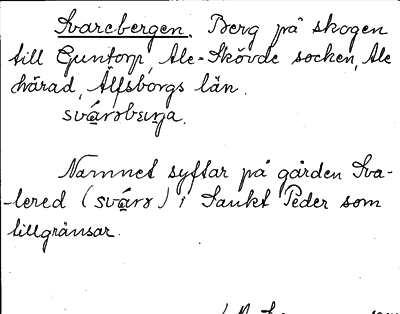 Svarebergen. Berg på skogen
till Guntorp, Ale-Skövde socken, Ale
härad, Älfsborgs län.
Namnet syftar på gården Sva-
-lered (svárə) i Sankt Peder som
tillgränsar.